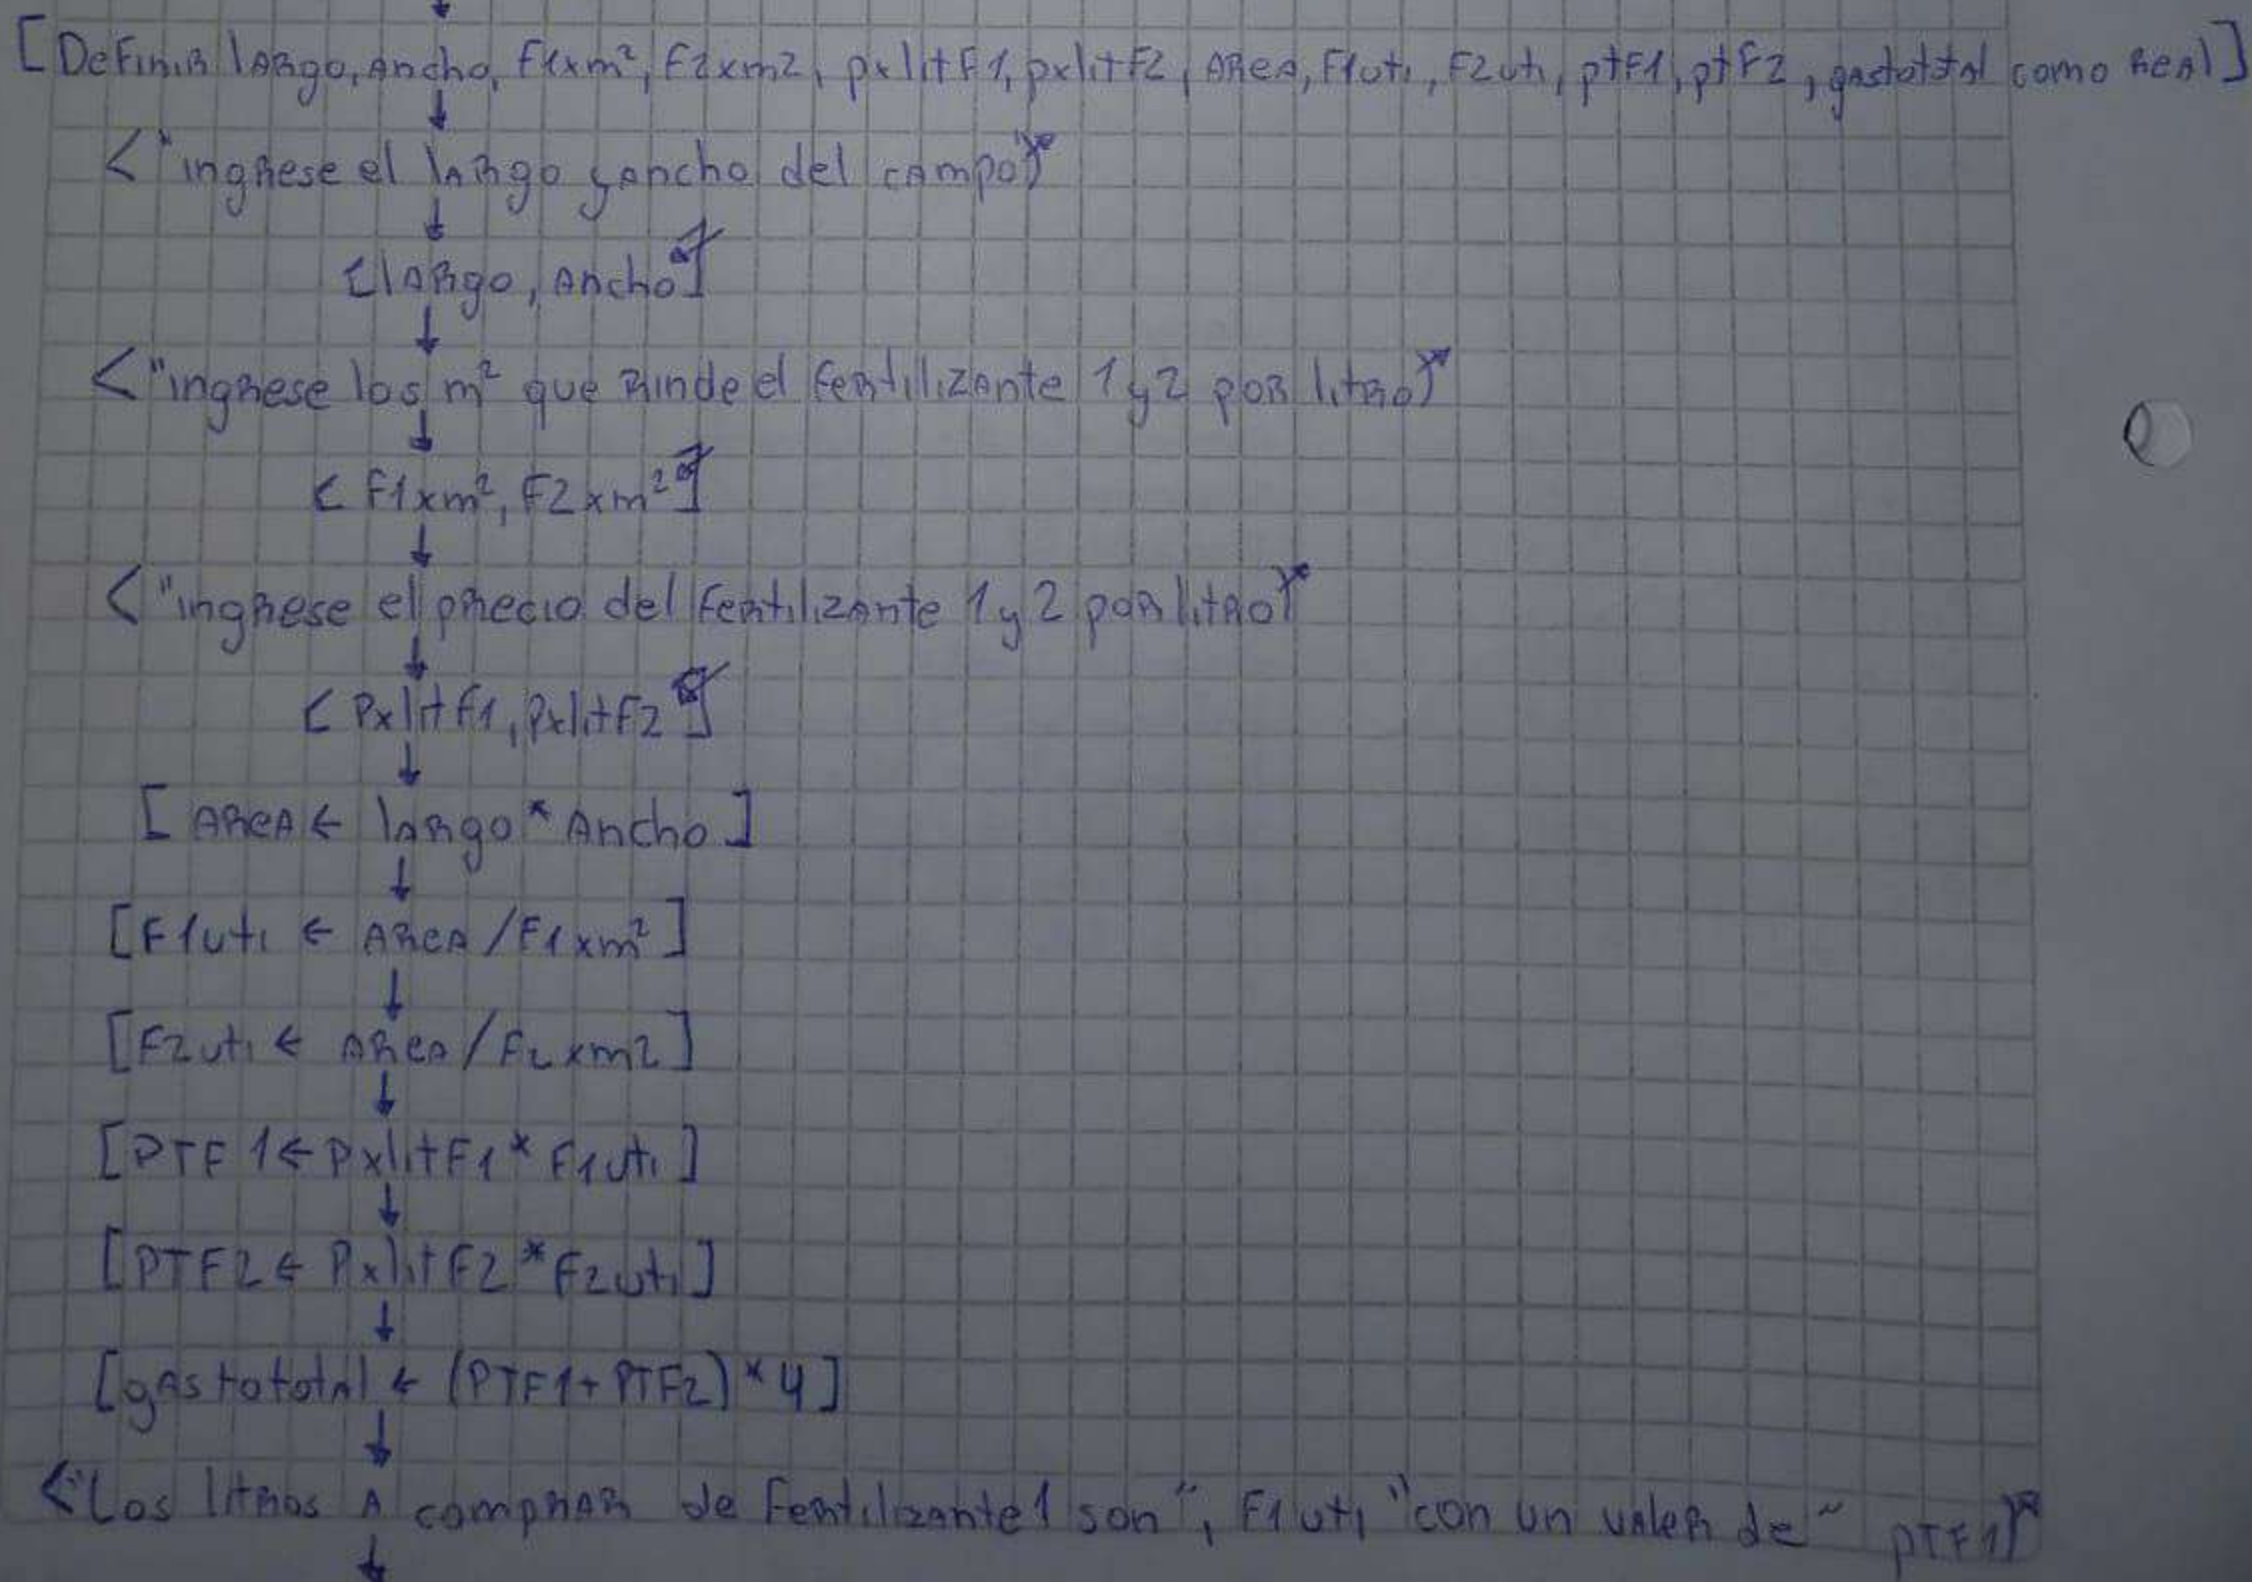 [Definir largo, ancho, F1xm², F2xm2, pxlitF1, pxlitF2, area, F1uti, F2uti, ptF1, ptF2, gastototal como real]
<"ingrese el largo y ancho del campo"
[largo, ancho]
<"ingrese los m² que rinde el fertilizante 1 y 2 por litro"
< F1xm², F2xm² ]
<"ingrese el precio del fertilizante 1 y 2 por litro"
[ PxlitF1, PxlitF2 ]
[ area ← largo * ancho ]
[F1uti ← area / F1xm² ]
[F2uti ← area / F2xm2 ]
[PTF1 ← PxlitF1 * F1uti ]
[PTF2 ← PxlitF2 * F2uti ]
[gastototal ← (PTF1 + PTF2) * 4 ]
<"Los litros a comprar de fertilizante 1 son", F1uti "con un valer de" PTF1